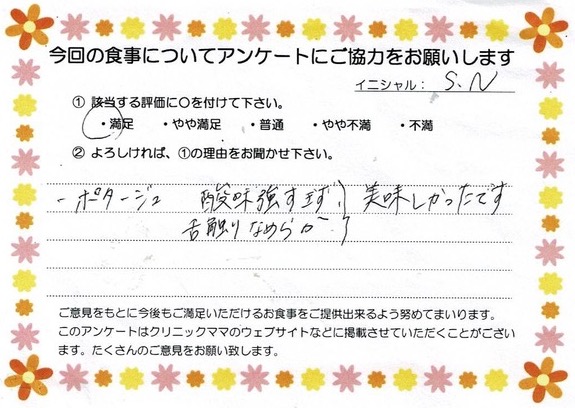 今回の食事についてアンケートにご協力をお願いします
イニシャル: S.N
① 該当する評価に○を付けて下さい。
・満足 ・やや満足 ・普通 ・やや不満 ・不満
② よろしければ、①の理由をお聞かせ下さい。
－ポタージュ 酸味強すぎず 美味しかったです
舌触りなめらか
ご意見をもとに今後もご満足いただけるお食事をご提供出来るよう努めてまいります。
このアンケートはクリニックママのウェブサイトなどに掲載させていただくことがござい
ます。たくさんのご意見をお願い致します。